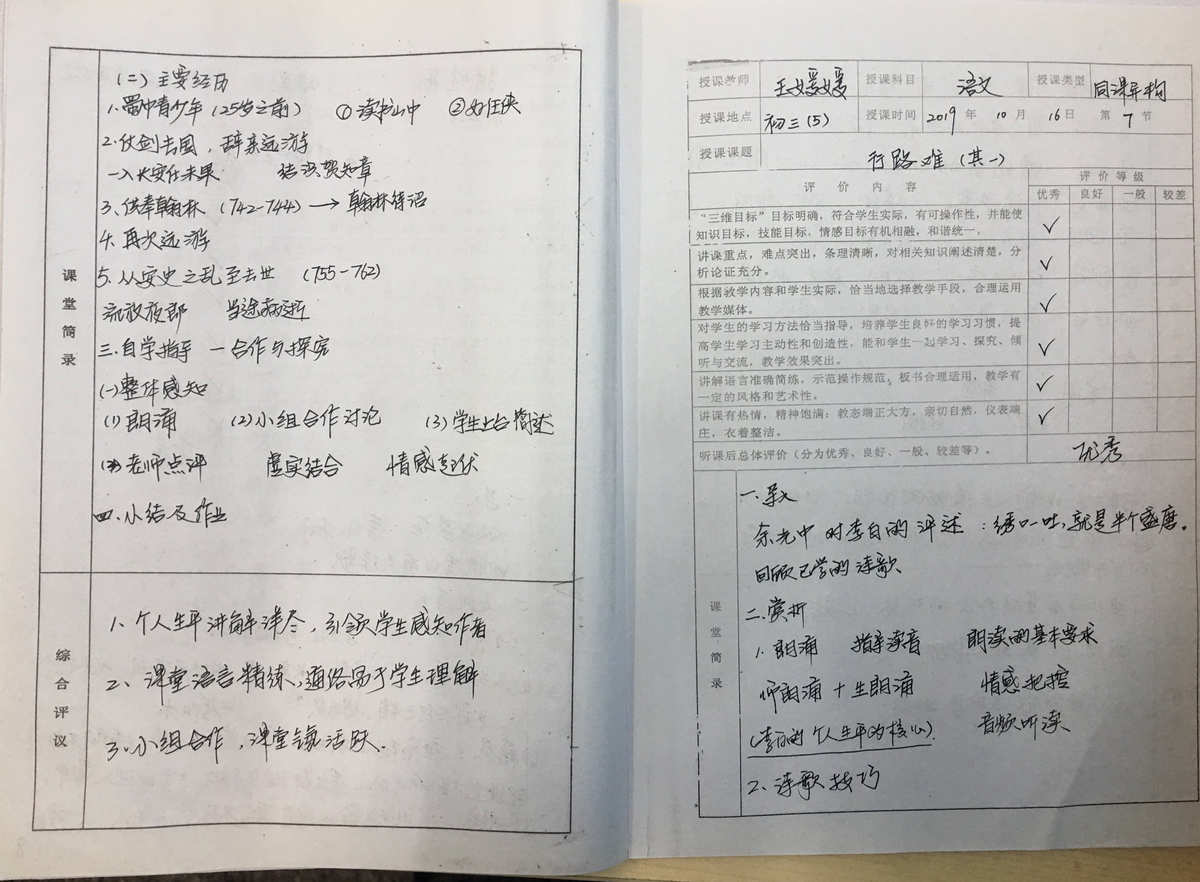 (二) 主要经历
1. 蜀中青少年 (25岁之前) ① 读书山中 ② 好任侠
2. 仗剑去国, 辞亲远游
一入长安仕未果 结识贺知章
3. 供奉翰林 (742-744) → 翰林待诏
4. 再次远游
5. 从安史之乱至去世 (755-762)
流放夜郎 当途病逝
三. 自学指导 — 合作与探究
(一) 整体感知
(1) 朗诵 (2) 小组合作讨论 (3) 学生上台简述
老师点评 虚实结合 情感起伏
四. 小结及作业
课堂简录
1. 个人生平讲解详尽, 引领学生感知作者
2、课堂语言精练、通俗易于学生理解
3. 小组合作, 课堂氛活跃.
综合评议
授课教师 王媛媛 授课科目 语文 授课类型 同课异构
授课地点 初三(5) 授课时间 2019年 10月 16日 第7节
授课课题 行路难 (其一)
评价内容 评价等级
优秀 良好 一般 较差
“三维目标”目标明确，符合学生实际，有可操作性，并能使
知识目标，技能目标，情感目标有机相融，和谐统一。 ✓
讲课重点，难点突出，条理清晰，对相关知识阐述清楚，分
析论证充分。 ✓
根据教学内容和学生实际，恰当地选择教学手段，合理运用
教学媒体。 ✓
对学生的学习方法恰当指导，培养学生良好的学习习惯，提
高学生学习主动性和创造性，能和学生一起学习、探究、倾
听与交流，教学效果突出。 ✓
讲解语言准确简练，示范操作规范，板书合理适用，教学有
一定的风格和艺术性。 ✓
讲课有热情，精神饱满；教态端正大方，亲切自然，仪表端
庄，衣着整洁。 ✓
听课后总体评价（分为优秀、良好、一般、较差等）。 优秀
一. 导入
余光中对李白的评述：绣口一吐, 就是半个盛唐。
回顾已学的诗歌
二. 赏析
1. 朗诵 指导读音 朗读的基本要求
师朗诵 + 生朗诵 情感把控
(李白的个人生平的核心). 音频听读
2、诗歌技巧
课堂简录